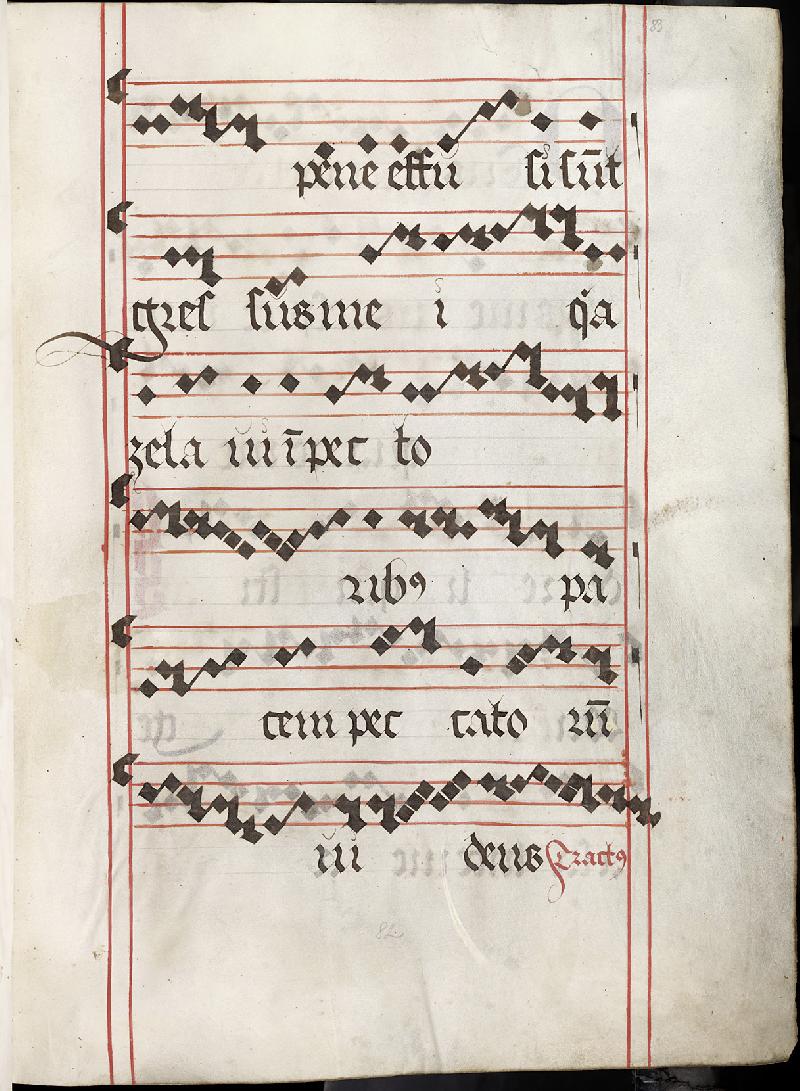 83
pene effu si sūt
gres sus me i q̇a
zela ui ī pec to
ribꝰ pa
cem pec cato rū
ui dens Tractꝰ
82